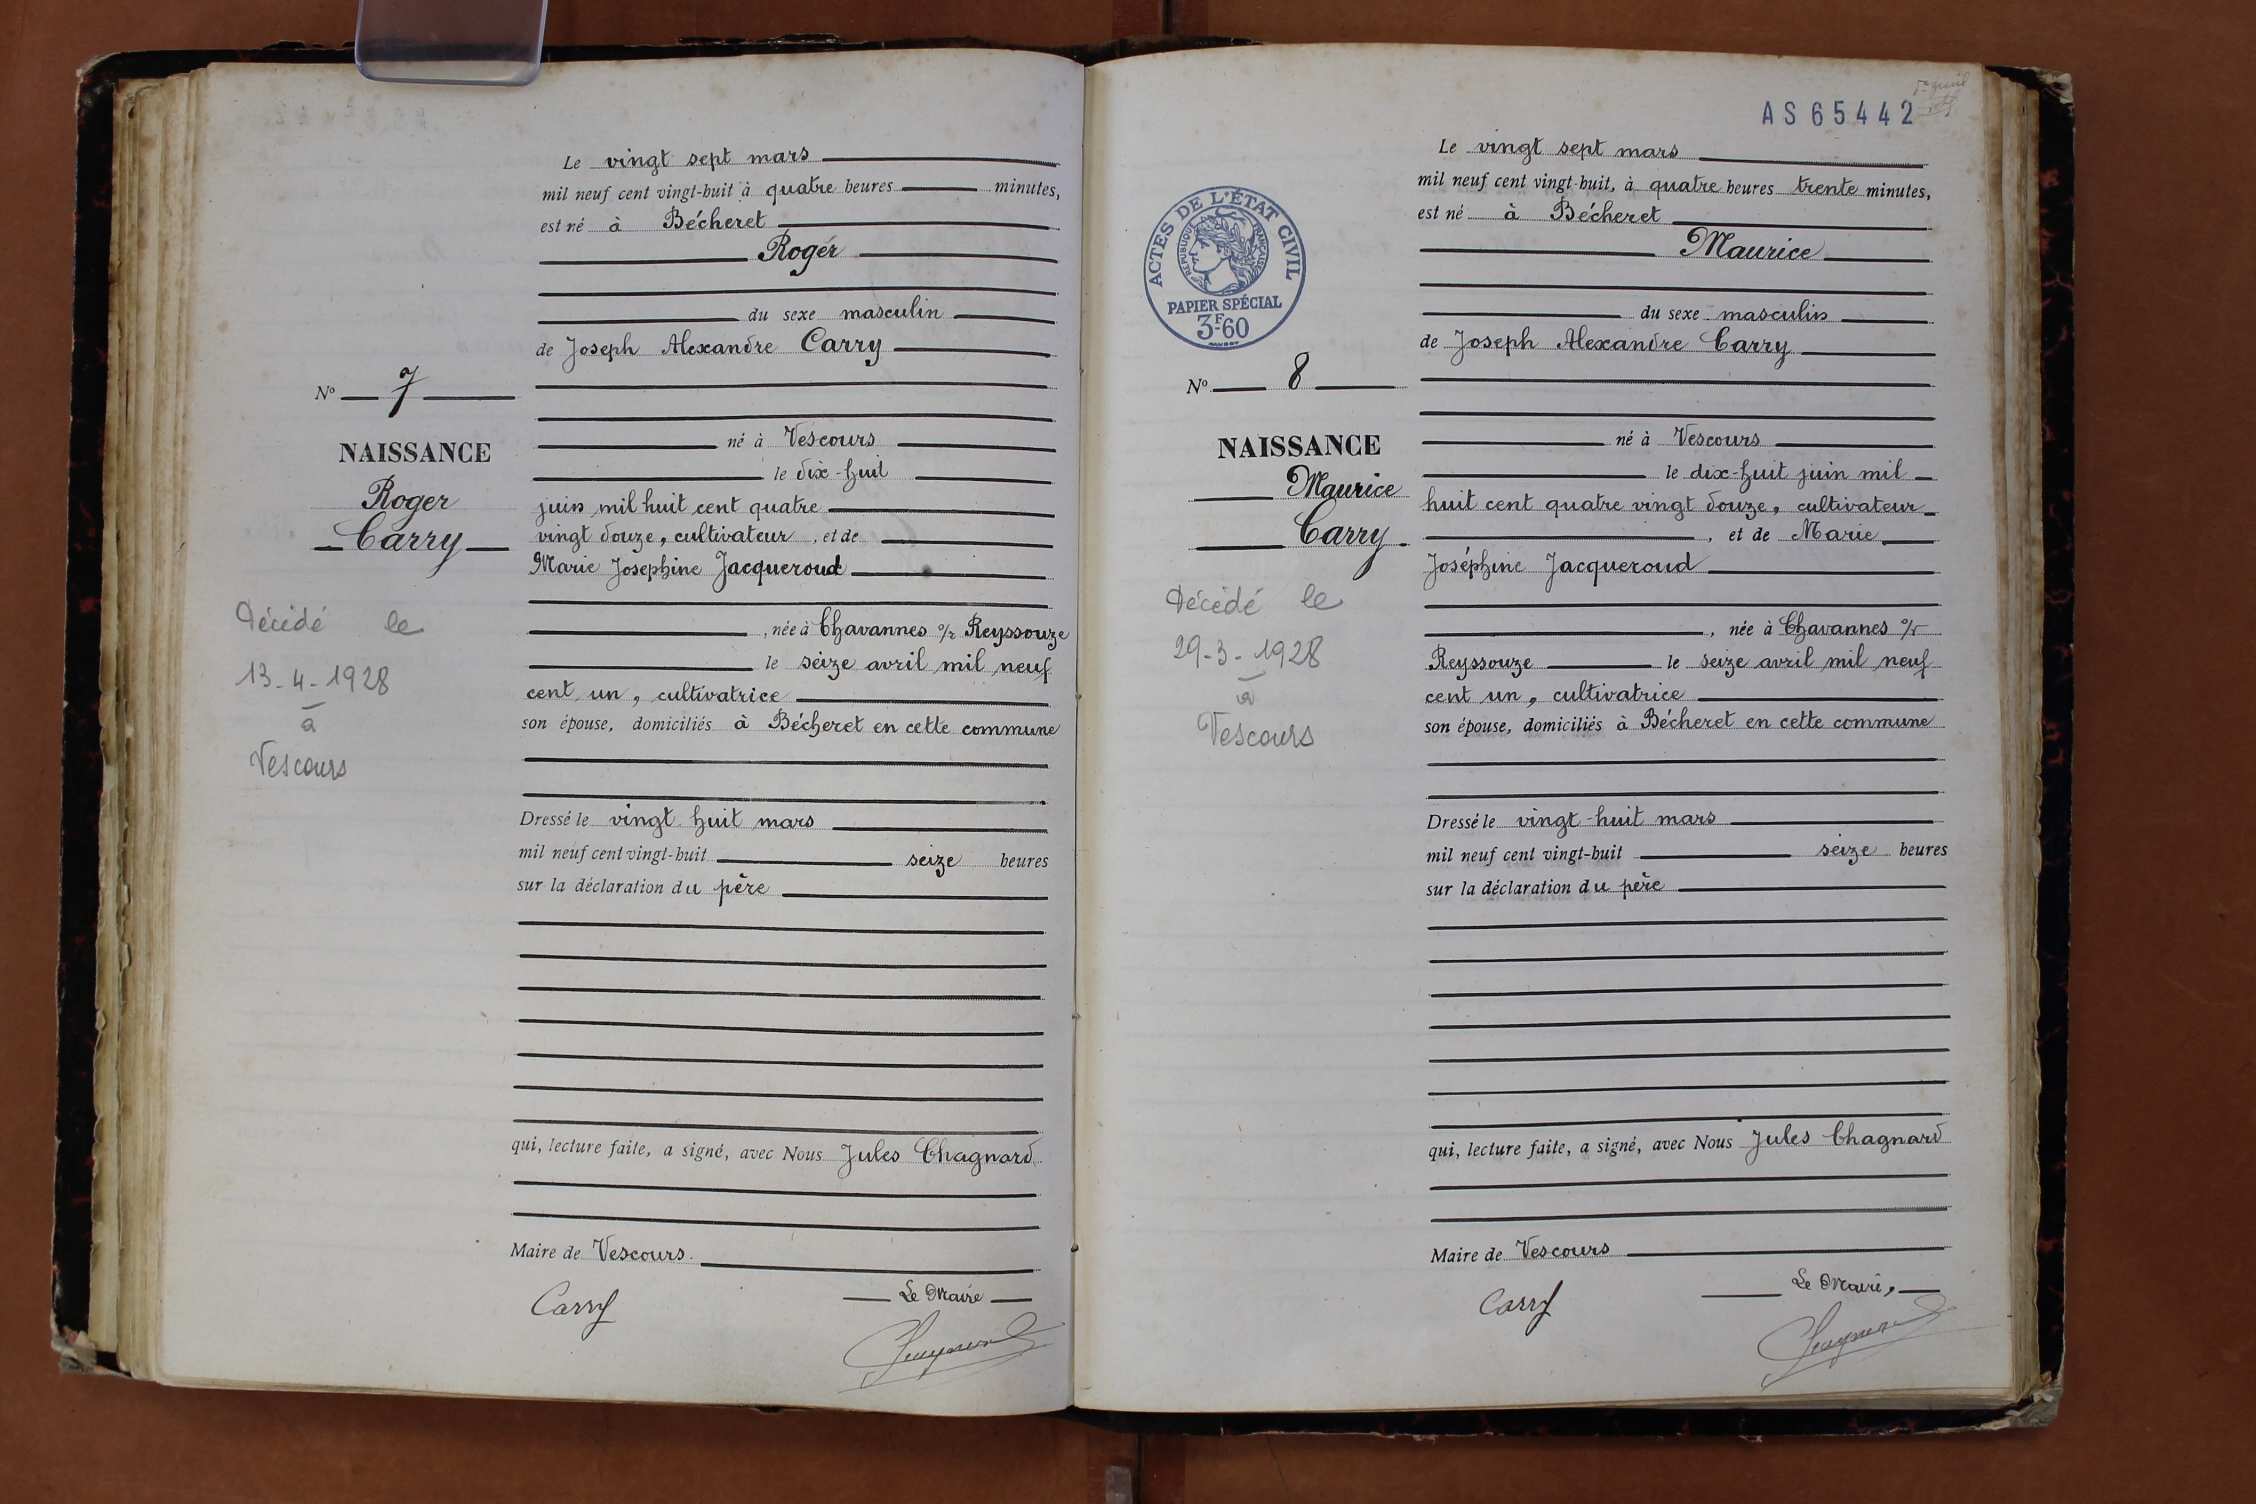 Le vingt sept mars
mil neuf cent vingt-huit à quatre heures minutes,
est né à Bécheret
Rogér
du sexe masculin
de Joseph Alexandre Carry
No 7
né à Vescours
NAISSANCE
le dix-huit
Roger
juin mil huit cent quatre
Carry
vingt douze, cultivateur, et de
Marie Josephine Jacqueroud
Décédé le
, née à Chavannes s/r Reyssouze
le seize avril mil neuf
13-4-1928
cent un, cultivatrice
à
son épouse, domiciliés à Bécheret en cette commune
Vescours
Dressé le vingt huit mars
mil neuf cent vingt-huit seize heures
sur la déclaration du père
qui, lecture faite, a signé, avec Nous Jules Chagnard
Maire de Vescours.
Le Maire
Carry
AS65442
Le vingt sept mars
mil neuf cent vingt-huit, à quatre heures trente minutes,
est né à Bécheret
Maurice
ACTES DE L'ÉTAT CIVIL
RÉPUBLIQUE FRANÇAISE
PAPIER SPÉCIAL
3F60
du sexe masculin
de Joseph Alexandre Carry
No 8
né à Vescours
NAISSANCE
le dix-huit juin mil
Maurice
huit cent quatre vingt douze, cultivateur
Carry
, et de Marie
Joséphine Jacqueroud
Décédé le
, née à Chavannes s/r
29-3-1928
Reyssouze le seize avril mil neuf
à
cent un, cultivatrice
son épouse, domiciliés à Bécheret en cette commune
Vescours
Dressé le vingt-huit mars
mil neuf cent vingt-huit seize heures
sur la déclaration du père
qui, lecture faite, a signé, avec Nous Jules Chagnard
Maire de Vescours
Le Maire,
Carry